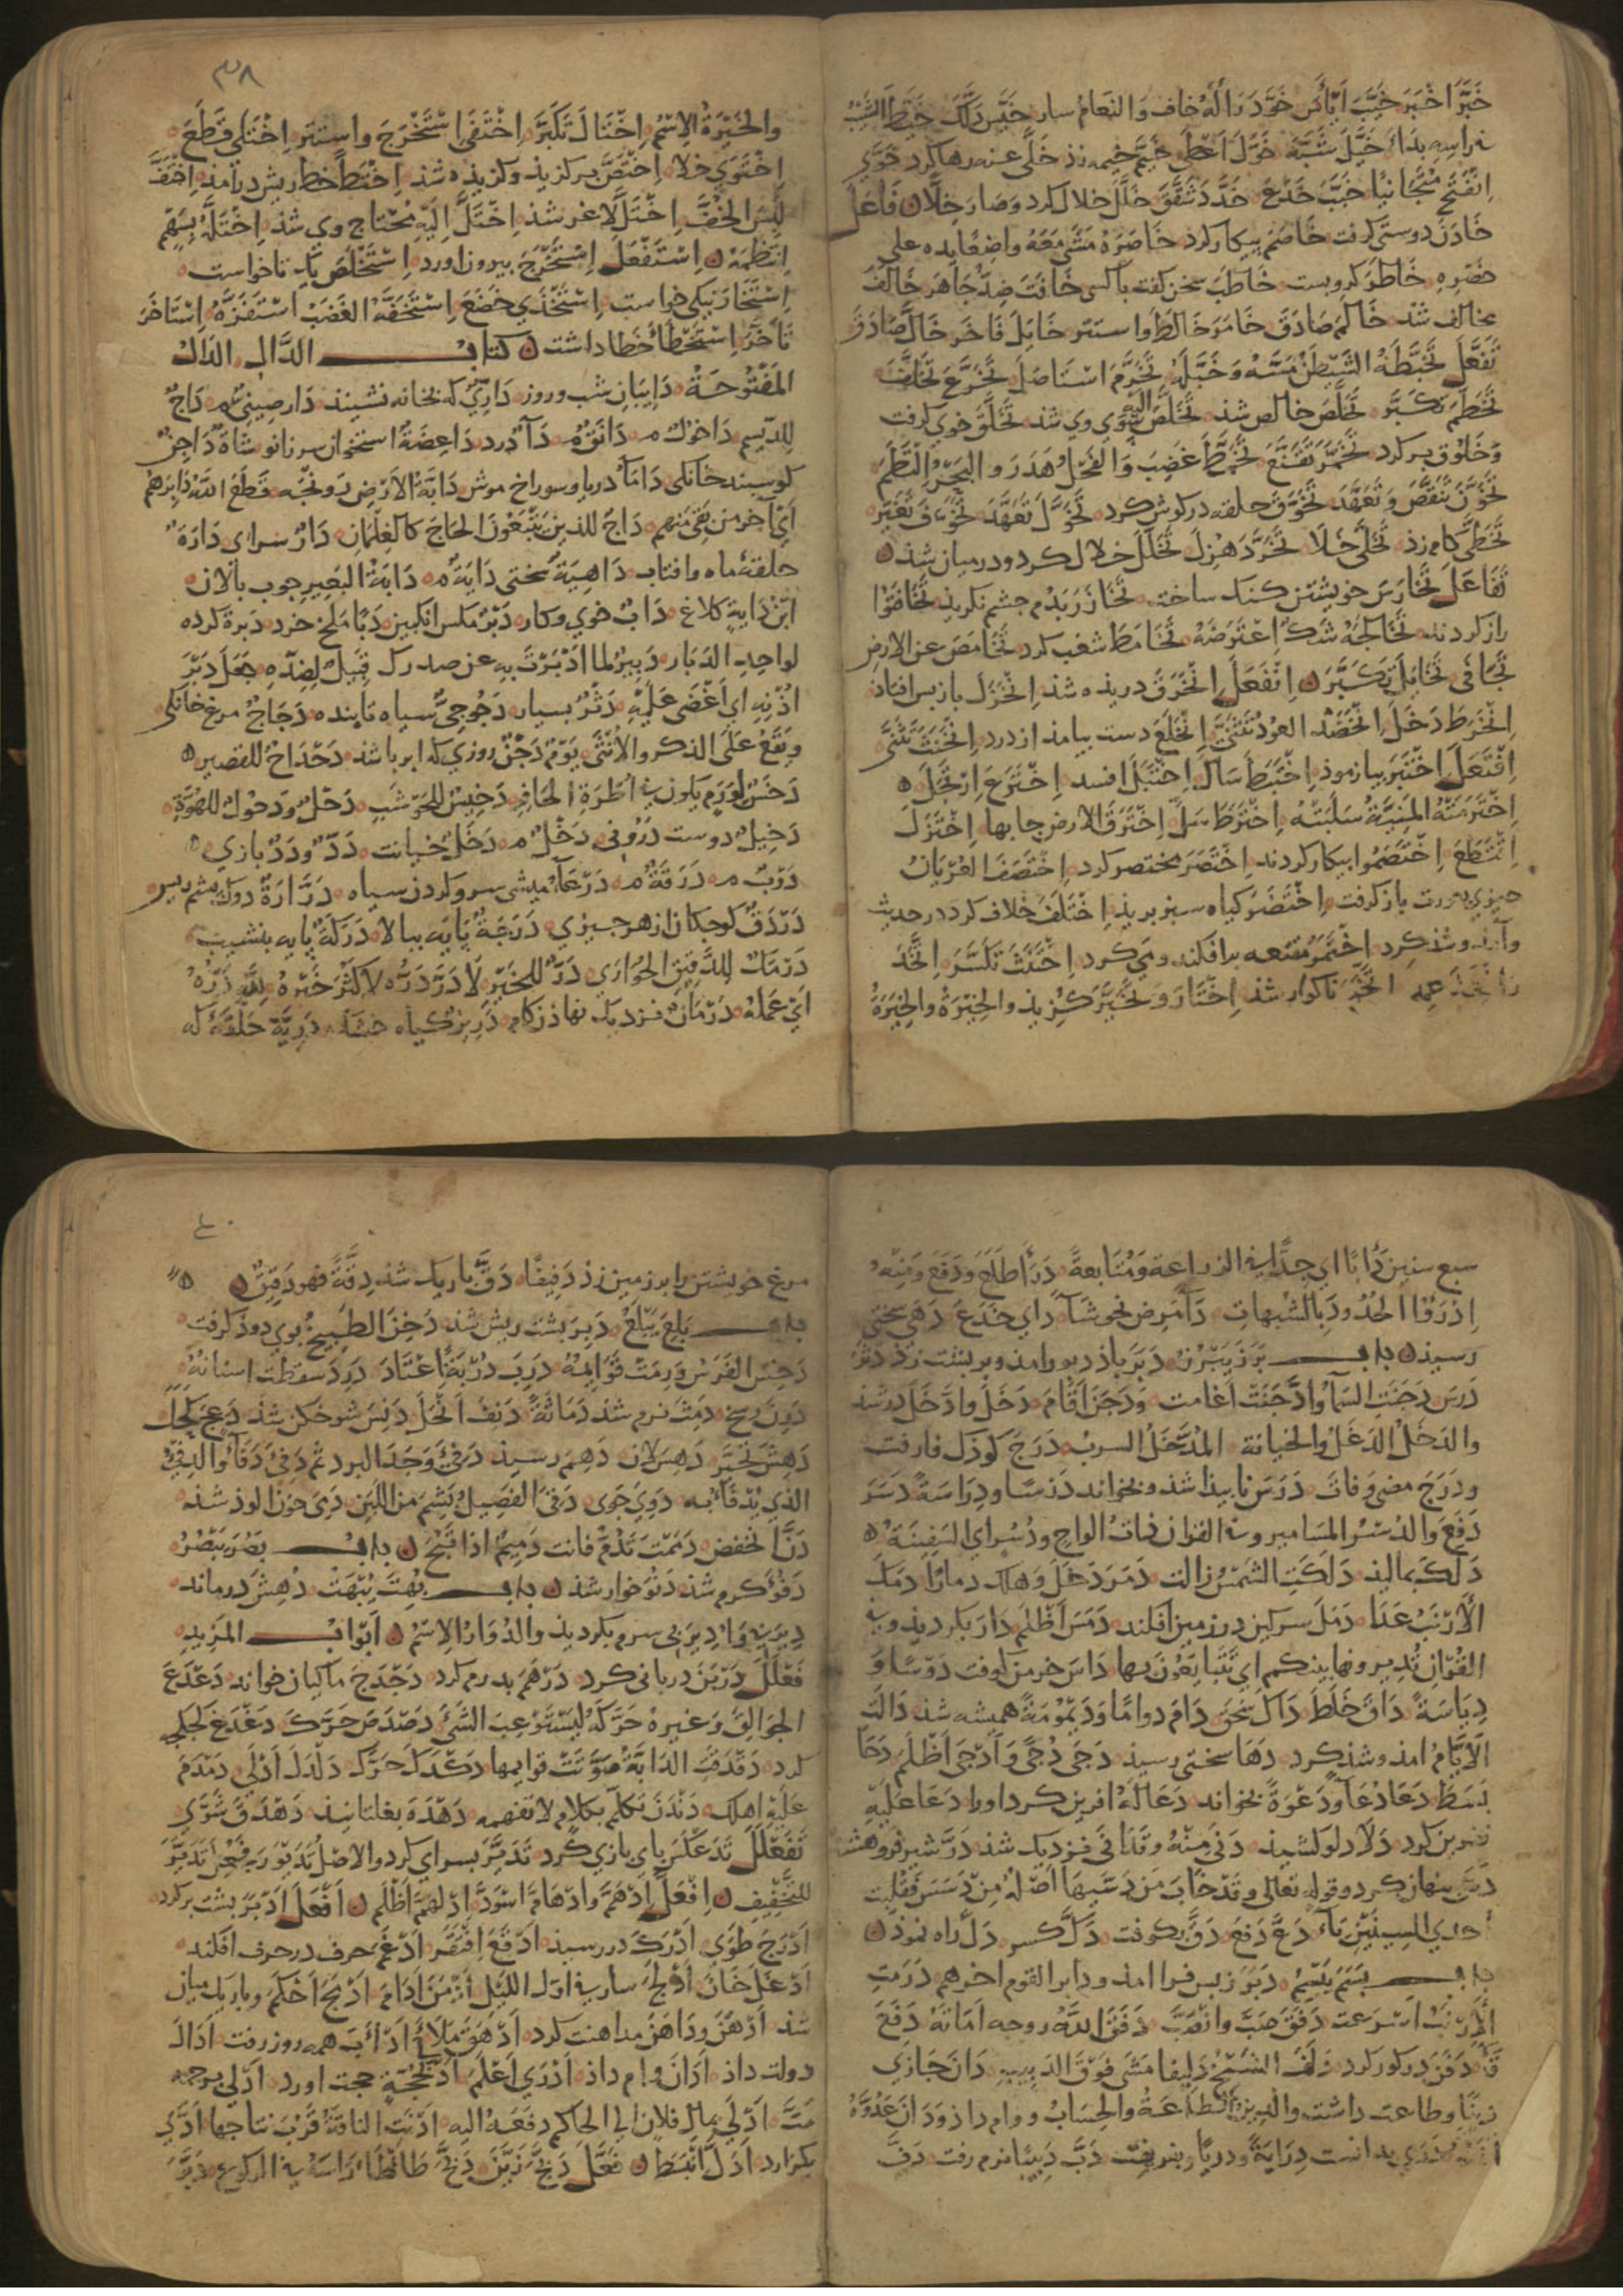 خَبَّرَ اَخْبَرَ خَيَّبَ اَيْأَسَ خَوَّدَ رَالَهُ خاف وَالنعَامُ سار خَيَّسَ ذَلَّلَ خَيَّطَ الشَيْبُ
براسِهِ بَدَا خَيَّلَ شَبَّهَ خَوَّلَ اَعْطَي خَيَّمَ خيمه زذ خَلَّى عنه رها كرد خَوَّي
اِنْفَتَحَ خَبَّبَ خَدَعَ خَدَّدَ شَقَّقَ خَلَّلَ خلال كرد وصَار خِلًّا فَاعَلَ
خَادَنَ دوستي كرفت خَاصَمَ بيكار كرد خَاصَرَهُ مَشَى مَعَهُ واضعًا يده على
خَصْرِهِ خَاطَرَ كرو بست خَاطَبَ سخن كفت با كسى خَافَتَ ضِدُّ جَاهَرَ خَالَفَ
مخالف شد خَالَمَ صَادَقَ خَامَرَ خَالَطَ واستتر خَايَلَ فَاخَرَ خَالَّ صَادَقَ
تَفَعَّلَ تَخَبَّطَهُ الشَيْطٰنُ مَسَّهُ وَخَبَّلَهُ تَخَرَّمَ اسْتَاصَلَ تَخَرَّعَ تَخَلَّفَ
تَخَطَّمَ تكَبَّرَ تَخَلَّصَ خالص شذ تَخَلَّصَ اليه سوي وي شذ تَخَلَّقَ خوي كرفت
وَخَلُوق بر كرد تَخَمَّرَ تَقَنَّعَ تَخَمَّطَ غَضِبَ وَالفَحْلُ هَدَرَ والبَحْرُ اِلْتَطَمَ
تَخَوَّنَ تَنَقَّصَ وَتَعَهَّدَ تَخَوَّقَ حلقه در كوش كرد تَخَوَّلَ تَعَهَّدَ
تَخَطَّى كام زذ تَخَلَّى خَلَا تَخَرَّدَ هَزِلَ تَخَلَّلَ خلال كرد ودر ميان شذ
تَفَاعَلَ تَخَارَسَ خويشتن كنك ساخت تَخَازَرَ بَدُم جشم نكريذ تَخَافَتُوا
راز كردند تَخَالَجَهُ شَكٌّ اِعْتَرَضَهُ تَخَامَطَ شغب كرد تَخَامَصَ عن الارض
تَجَافَى تَخَايَلَ تكَبَّرَ اِنْفَعَلَ اِنْخَرَقَ دريذه شذ اِنْخَزَلَ باز بس افتاذ
اِنْخَرَطَ دَخَلَ اِنْخَضَدَ العُودُ تَثَنَّى اِنْخَلَعَ دست بيامذ از درد اِنْخَنَثَ تَثَنَّى
اِفْتَعَلَ اِخْتَبَرَ بيازموذ اِخْتَبَطَ سَأَلَ اِخْتَبَلَ افسد اِخْتَرَعَ اِرْتَجَلَ
اِخْتَرَمَتْهُ المَنِيَّةُ سَلَبَتْهُ اِخْتَرَطَ سَلَّ اِخْتَرَقَ الارض جابها اِخْتَزَلَ
اِنْقَطَعَ اِخْتَصَمُوا بيكار كردند اِخْتَصَرَ مختصر كرد اِخْتَصَفَ العُرْيَانُ
جيزي بعورت باز كرفت اِخْتَضَرَ كياه سبز بريذ اِخْتَلَفَ خلاف كرد در حديث
وآمذ وشذ كرد اِخْتَمَرَ مقنعه برافكند ومى كرد اِخْتَنَثَ تَكَسَّرَ
ناكوار شذ اِخْتَارَ وَتَخَيَّرَ كزيذ والخِيْرَةُ والخِيَرَةُ
٣٨
والخَيْرَةُ الاِسْمُ اِخْتَالَ تَكَبَّرَ اِخْتَفَى اِسْتَخْرَجَ واستتر اِخْتَلَى قَطَعَ
اِخْتَوَي خلا اِخْتَصَّ بر كزيذ وكزيذه شذ اِخْتَطَّ خط ريش درآمذ اِخْتَفَّ
لَبِسَ الخُفَّ اِخْتَلَّ لاغر شذ اِخْتَلَّ اِلَيْهِ محتاج وى شذ اِخْتَلَّهُ بِسَهْمٍ
انتَظَمَهُ اِسْتَفْعَلَ اِسْتَخْرَجَ بيرون اورد اِسْتَخْلَصَ باك تا خواست
اِسْتَخَارَ نيكى خواست اِسْتَخْذَي خَضَعَ اِسْتَخَفَّهُ الغَضَبُ اسْتَفَزَّهُ اِسْتَاخَرَ
تَأَخَّرَ اِسْتَخْطَأ خَطا داشت كتاب الدَّالِ الدَالُ
المَفْتُوحَةُ دَايبَانِ شب وروز دَارِيٌّ كه بخانه نشيند دَار صِينِي م دَاجٌ
لِلدَّيْسَمِ دَاخول م دَانَقٌ م دَآءٌ درد دَاغِصَةٌ استخوان سر زانو شَاةٌ دَاجِنٌ
كوسبند خانكى دَامَآءُ دريا وسوراخ موش دَابَّةُ الاَرْضِ ديونجه قَطَعَ اللهُ دَابِرَهُمْ
اَيْ آخر من بَقِيَ مِنهم دَاجٌّ للذين يَتْبَعُونَ الحَاجَّ كالغِلْمَانِ دَارٌ سراي دَارَةٌ
حلقهٔ ماه وافتاب دَاهِيَةٌ سختى دَايَةٌ م دَايَةُ البَعِيرِ جوب بالان
ابْنُ دَايَةٍ كلاغ دَابٌ خوي وكار دَبْرٌ مكس انكبين دَبًا مَلَخ خرد دَبْرَةٌ كرده
لواحِدِ الدَبَار دَبِيْرٌ لما اَدْبَرْتَ بِهِ عن صدرك قَبِيلٌ لِضِدِّهِ جَعَلَ دَبْرَ
اُذُنِهِ اي اَغْضَى عَلَيْهِ دَثْرٌ بسيار دَجُوجِيٌّ سياه تابنده دَجَاجٌ مرغ خانكى
ويَقَعُ عَلَى الذكَر والاُنثَى يَوْمُ دَجْنٍ روزي كه ابر باشذ دَحْدَاحٌ للقصير
دَخَسٌ لِوَرَمٍ يكون في اُطْرَةِ الحَافِرِ دَخِيْسٌ للحَوْشَبِ دَحْلٌ ودَحُولٌ للهُوَّةِ
دَخِيلٌ دوست دَرُوني دَخْلٌ م دَخَلٌ خيانت دَدٌ ودَدٌ بازي
دَرْبٌ م دَرَقَةٌ م دَرْعَآءُ ميشى سر وكردن سياه دَرَّارَةٌ دوك بشم ريس
دَرْدَقٌ كوجكان از هر جيزي دَرَجَةٌ بَايه ببالا دَرَكَةٌ بايه بنشيب
دَرْمَكٌ لِلدَّقِيْقِ الحُوَّارَي دَرٌّ للخَيْرِ لَا دَرَّ دَرُّهُ لا كَثُرَ خَيْرُهُ لِلّٰهِ دَرُّهُ
اَيْ عَمَلُهُ دَرْمَانٌ نزديك نهاذن كام دَرِينٌ كياه خشك دَرِيَّةٌ حَلْقَةٌ كه
سبع سنين دَأَبًا اي جدًّا في الزراعة وَمُتَابعةً دَرَأَ طَلَعَ ودَفَعَ ومنه
اِدْرَؤُا الحُدُودَ بِالشُبهاتِ دَآءَ مَرِضَ نحو شَآءَ دَأي خَدَعَ دَهَى سختى
رسيذ باب بَرَزَ يَبْرُزُ دَبَرَ باذ دبور امذ وبر بشت زذ دَثَرَ
دَرَسَ دَجَنَت السَمآءُ وَاَدْجَنَتْ اغامت وَدَجَنَ اَقَامَ دَخَلَ وادَّخَلَ در شذ
والدَخَلُ الدَغَلُ والخيانة المُدَّخَلُ السربُ دَرَجَ كوذك فارفت
ودَرَجَ مضى وفات دَرَسَ نابيذا شذ وبخواند دَرْسًا ودِرَاسَةً دَسَرَ
دَفَعَ والدُسُرُ المسَامير وفي القران ذات الواح ودُسُرٍ اي السَفِينَةُ
دَلَكَ بماليذ دَلَكَتِ الشَمْسُ زالت دَمَرَ دَخَلَ وهلك دمارًا دَمَكَ
الأَرْنَبُ عَدَا دَمَلَ سركين در زمين افكند دَمَسَ اَظْلَمَ دَارَ بكرديذ وفي
القُرْانِ تُدِيرونها بينكم اي تَتَبَايَعُونَ بها دَاسَ خرمن كوفت دَوْسًا وَ
دِيَاسَةً دَافَ خَلَطَ دَاكَ سَحَقَ دَامَ دوامًا وَدَيْمُومَةً هميشه شذ دَالَتِ
الاَيَّامُ امذ وشذ كرد دَهَا سختى رسيذ دَجَى دُجًى وَاَدْجَى اَظْلَمَ دَحَا
بَسَطَ دَعَا دُعَآءً ودَعْوَةً بخواند دَعَا لَهُ افرين كرد اورا دَعَا عَلَيْهِ
نفرين كرد دَلَا دلو كشيذ دَنَى مِنْهُ وتَدَانَى نزديك شذ دَرَّ شير فروهشت
دَسَّ بنهان كرد وقوله تعالى وقد خاب من دَسّٰيها اَصْلُهُ مِنْ دَسَسَ فقلبت
احدي السِينَيْنِ يَآءً دَعَّ دَفَعَ دَقَّ بكوفت دَكَّ كسر دَلَّ راه نموذ
باب بَسَمَ يَبْسِمُ دَبَرَ زبس فرا امذ ودابر القوم اخرهم دَرَمَتِ
الاَرْنَبُ اسْرَعت دَفَقَ صَبَّ وانْصَبَّ دَفَقَ اللهُ روحه اَمَاتَهُ دَفَعَ
دَفَنَ در كور كرد دَلَفَ الشَيْخُ دَلِيفا مَشَى فَوْقَ الدَبِيبِ دَانَ جَازي
دِيْنًا وطاعت داشت والدِينُ الطَاعَةُ والحِسَابُ ووام داذ ودَانَ عَدُوَّهُ
دَرَي بدانست دِرَايَةً ودريا وبفريفت دَبَّ دَبِيبًا نرم رفت دَفَّ
٤٠
مرغ خويشتن را بر زمين زذ دَفِيفًا دَقَّ باريك شذ دِقَّةً فهو دَقِيقٌ
باب بَلِعَ يَبْلَعُ دَبِرَ بشت ريش شذ دَخِنَ الطَبِيخُ بوي دوذ كرفت
دَخِسَ الفَرَسُ وَرِمَتْ قَوَائِمُهُ دَرِبَ دُرْبَةً اِعْتَادَ دَرِدَ سقطت اسنانهُ
دَرِنَ وسخ دَمِثَ نرم شذ دَمَاثَةً دَنِفَ اَنْحَلَ دَنِسَ شوخكن شذ دَعِجَ كَحِلَ
دَهِشَ تحَيَّرَ دَهِسَ لان دَهِمَ رسيذ دَفِئَ وَجَدَ البرد ثُمَّ دَفِئَ دَفَآءً والدِفْءُ
الذي يُدْفَأ به دَوِيَ جَوِيَ دَقِيَ الفَصِيلُ بَشِمَ مِنَ اللَبَنِ دَمِيَ خون الوذ شذ
دَنَّ انخفض دَمُمْتَ تَدُمُّ فانت دَمِيمٌ اذا قَبُحَ باب بَصُرَ يَبْصُرُ
دَفُؤَ كرم شذ دَنُؤَ خوار شذ باب بُهِتَ يُبْهَتُ دُهِشَ درماند
دِيرَ بِهِ وَاُدِيْرَ بي سرم بكرديذ والدُوَارُ الاِسْمُ اَبْوَابُ المَزِيدِ
فَعْلَلَ دَرْبَنَ درباني كرد دَرْهَمَ بدرم كرد دَجْدَجَ ماكيان خواند دَعْدَعَ
الجَوَالِقَ وغيره حَرَّكَهُ لِيَسْتَوْعِبَ الشَيْءَ دَصْدَصَ حَرَّكَ دَغْدَغَ
كرد دَقْدَقَتِ الدَابَّةُ صَوَّتَتْ قوايمها دَكْدَكَ حَرَّكَ دَلْدَلَ اَدْلَى دَمْدَمَ
عَلَيْهِ اهلك دَنْدَنَ تكلّم بكلامٍ لا تفهمه دَهْدَهَ بغلتانيذ دَهْدَقَ شَوَّي
تَفَعْلَلَ تَدَعْكَسَ باي بازي كرد تَدَيَّرَ بسراي كرد والاصل تَدَيْوَرَ
لِلتَّخْفِيفِ اِفْعَلَّ اِدْهَمَّ وادْهَامَّ اسْوَدَّ اِدْلَهَمَّ اَظْلَمَ اَفْعَلَ اَدْبَرَ بشت بر كرد
اَدْرَجَ طَوَي اَدْرَكَ در رسيذ اَدْقَعَ اِفْتَقَرَ اَدْغَمَ حرف در حرف افكند
اَدْغَلَ خَانَ اَدْلَجَ سار في اول اللَيْلِ اَدْمَنَ اَدَامَ اَدْمَجَ اَحْكَمَ وباريك ميان
شذ اَدْهَنَ ودَاهَنَ مداهنت كرد اَدْهَقَ مَلَأَ اَدْأَبَ همه روز رفت اَدَالَ
دولت داذ اَدَانَ وام داذ اَدْرَي اَعْلَمَ اَدْلَى بحُجَّةٍ حجت اورد اَدْلَى برحمه
مَتَّ اَدْلَى بمال فلان الى الحاكم دفَعَهُ اليه اَدْنَتِ الناقَةُ قَرُبَ نتاجها اَدَّي
بكزارد اَدَلَّ انْبَسَطَ فَعَّلَ دَبَّجَ زَيَّنَ دَبَّحَ طَأْطَأَ رَاسَهُ في الركوع دَبَّرَ